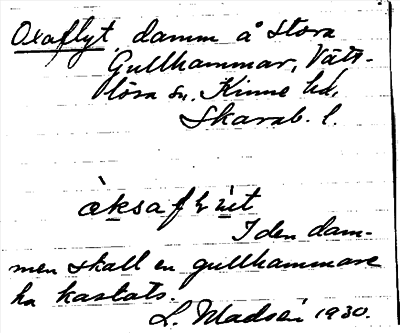 Oxaflyt, damm å Stora
Gullhammar, Vätt-
lösa sn, Kinne hd,
Skarab. l.
I den dam-
men skall en gullhammare
ha kastats.
L. Madsén 1930.